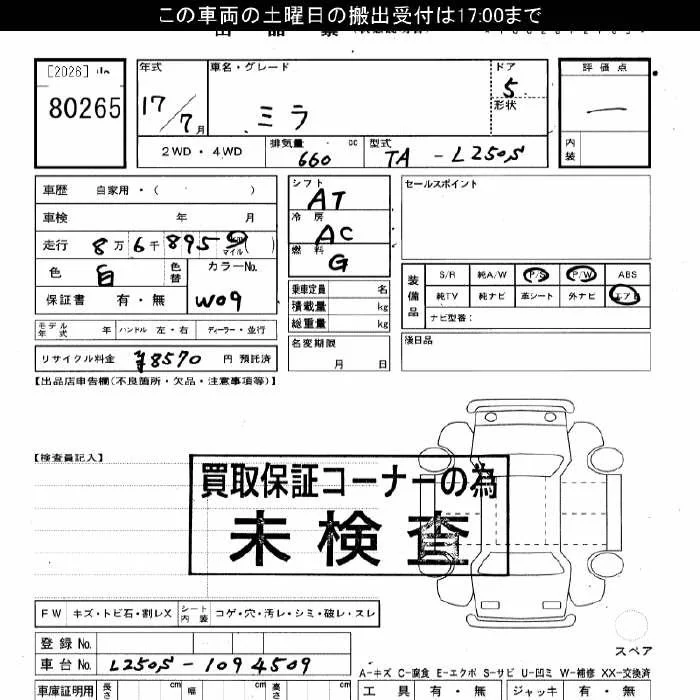 この車両の土曜日の搬出受付は17:00まで
[2026]
80265
年式
17/7月
車名・グレード
ミラ
ドア
5
形状
評価点
—
内装
2WD・4WD
排気量 cc
660
型式
TA-L250S
車歴 自家用・( )
車検 年 月
走行 8万6千895 km マイル ( )
色 白 色替 カラーNo.
W09
保証書 有・無
モデル年式 年 ハンドル 左・右 ディーラー・並行
リサイクル料金 ¥8570 円 預託済
シフト
AT
冷房
AC
燃料
G
乗車定員 名
積載量 kg
総重量 kg
名変期限
月 日
セールスポイント
装備品
S/R 純A/W P/S P/W ABS
純TV 純ナビ 革シート 外ナビ エアB
ナビ型番:
後日品
【出品店申告欄(不良箇所・欠品・注意事項等)】
【検査員記入】
買取保証コーナーの為
未検査
FW キズ・トビ石・割レX シート内装 コゲ・穴・汚レ・シミ・破レ・スレ
登録No.
車台No. L250S-1094509
スペア
A-キズ C-腐食 E-エクボ S-サビ U-凹ミ W-補修 XX-交換済
車庫証明用 長さ cm 幅 cm 高さ cm
工具 有・無 ジャッキ 有・無